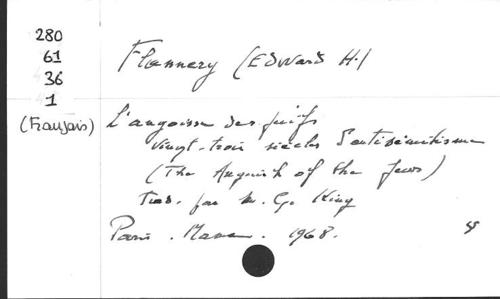 280
61
36
1
(Français)
Flannery (Edward H.)
L'angoisse des juifs
vingt-trois siècles d'antisémitisme
(The Anguish of the Jews)
trad. par M. G. King
Paris. Mame. 1968.